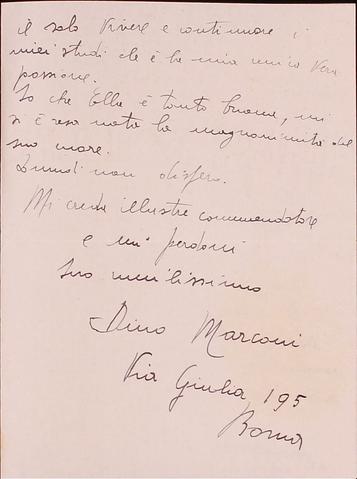 il solo vivere e continuare i
miei studi che è la mia unica vera
passione.
So che Ella è tanto buona, mi
si è resa nota la magnanimità del
suo
Quindi non dispero.
Mi creda illustre commendatore
e mi perdoni
suo umilissimo
Dino Marconi
Via Giulia 195
Roma